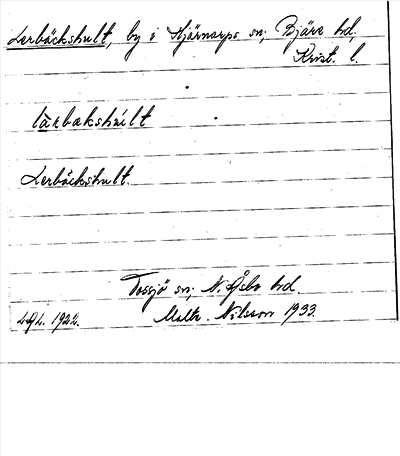 Lerbäckshult, by i Hjärnarps sn, Bjäre hd,
Krist. l.
lärbakshult
Lerbäckshult.
Tossjö sn, N. Åsbo hd.
1922. Malte Nilsson 1933.